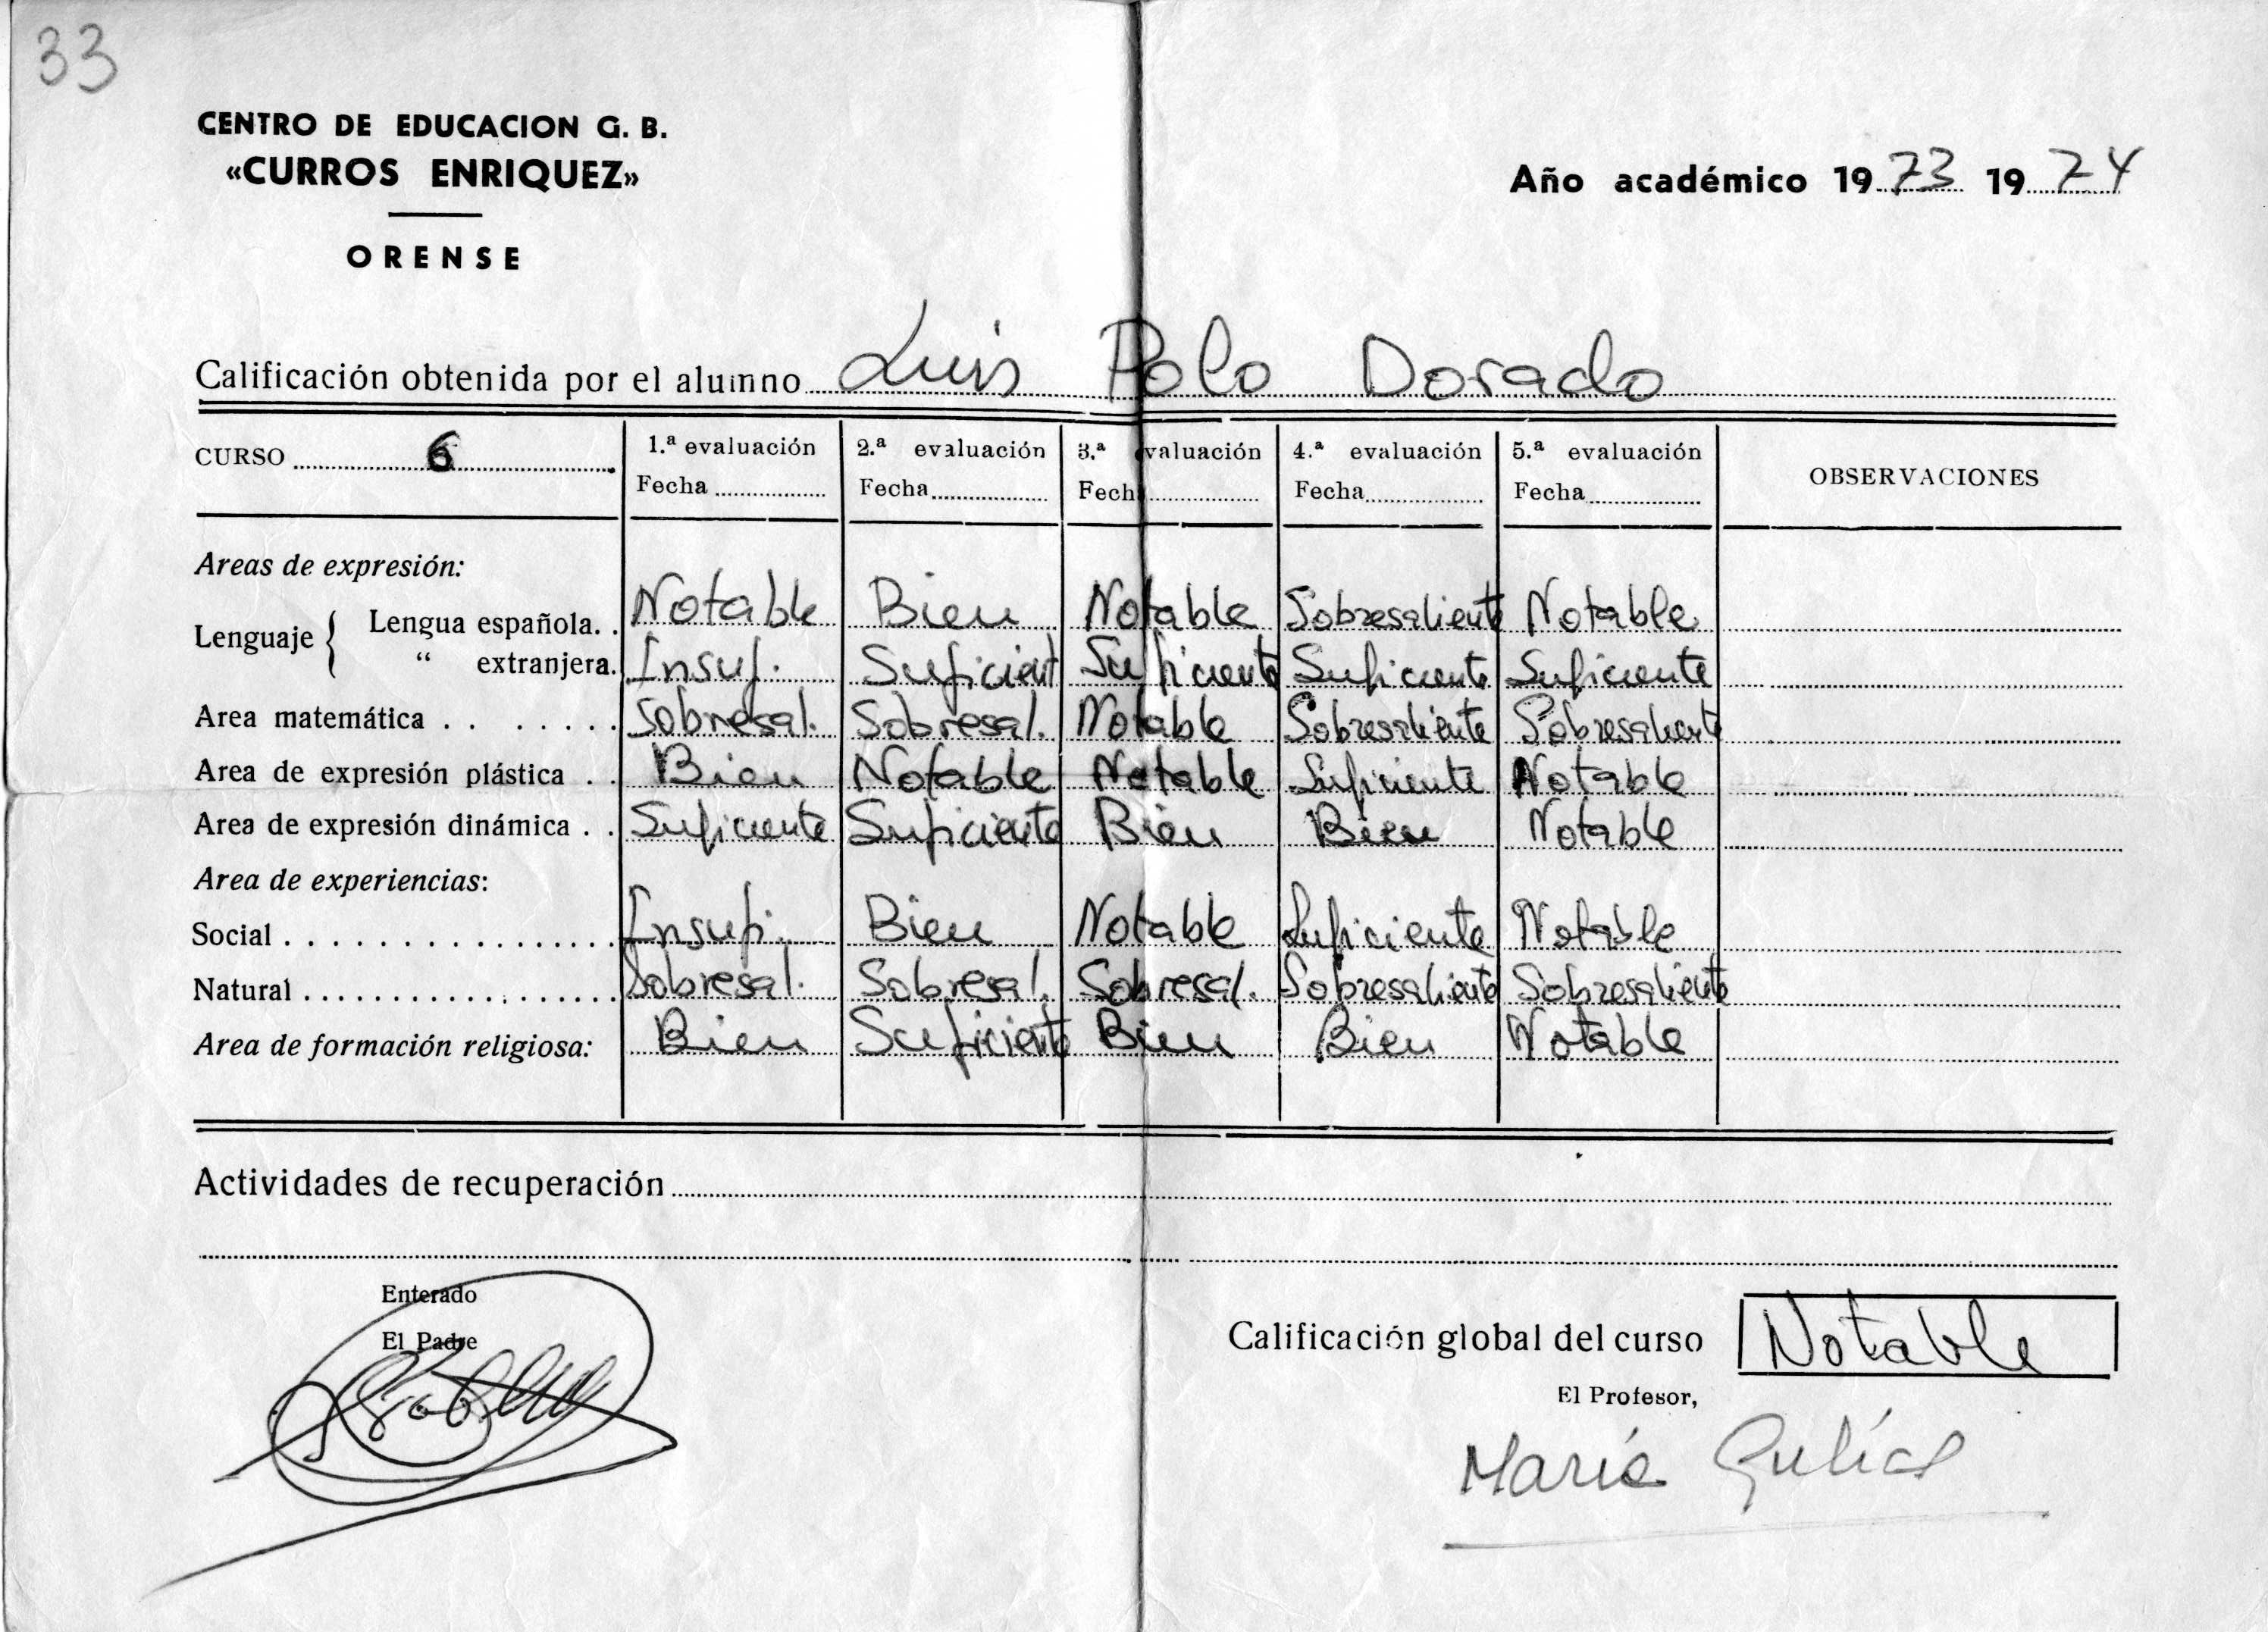 33
CENTRO DE EDUCACION G. B.
«CURROS ENRIQUEZ»
ORENSE
Año académico 1973 1974
Calificación obtenida por el alumno Luis Polo Dorado
CURSO 6 1.ª evaluación 2.ª evaluación 3.ª evaluación 4.ª evaluación 5.ª evaluación OBSERVACIONES
Fecha Fecha Fecha Fecha Fecha
Areas de expresión:
Lenguaje { Lengua española. . Notable Bien Notable Sobresaliente Notable
“ extranjera. Insuf. Suficient Suficiente Suficiente Suficiente
Area matemática . . . . . . . Sobresal. Sobresal. Notable Sobresaliente Sobresaliente
Area de expresión plástica . . Bien Notable Notable Suficiente Notable
Area de expresión dinámica . . Suficiente Suficiente Bien Bien Notable
Area de experiencias:
Social . . . . . . . . . . . . . . . . Insuf. Bien Notable Suficiente Notable
Natural . . . . . . . . . . . . . . . . Sobresal. Sobresal. Sobresal. Sobresaliente Sobresaliente
Area de formación religiosa: Bien Suficiente Bien Bien Notable
Actividades de recuperación
Enterado
El Padre
Calificación global del curso Notable
El Profesor,
María